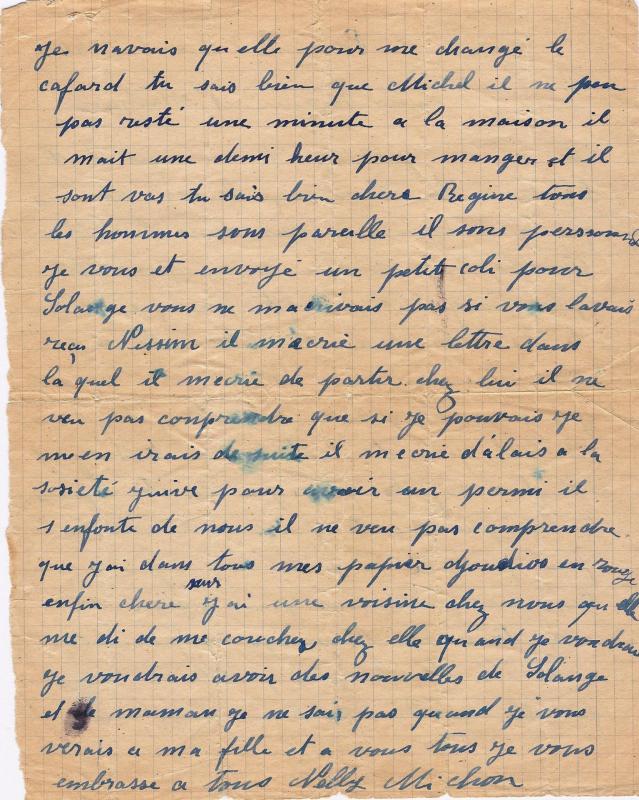 je navais qu elle pour me changé le
cafard tu sais bien que Michel il ne peu
pas resté une minute a la maison il
mait une demi heur pour manger et il
sont vas tu sais bien chere Regine tous
les hommes sons pareille il sons
je vous et envoyé un petit coli pour
Solange vous ne macrivais pas si vous lavais
reçu Nissim il macrie une lettre dans
la quel il mecrie de partir chez lui il ne
veu pas comprendre que si je pouvais je
m en irais de suite il mecrie d'alais a la
societé yuive pour avoir un permi il
s enfoute de nous il ne veu pas comprendre
que j ai dans tous mes papier djoudios en rouge
enfin chere sur j ai une voisine chez nous qu elle
me di de me couchez chez elle quand je voudrai
je voudrais avoir des nouvelles de Solange
et de maman je ne sais pas quand je vous
verais a ma fille et a vous tous je vous
embrasse a tous Nelly Michon